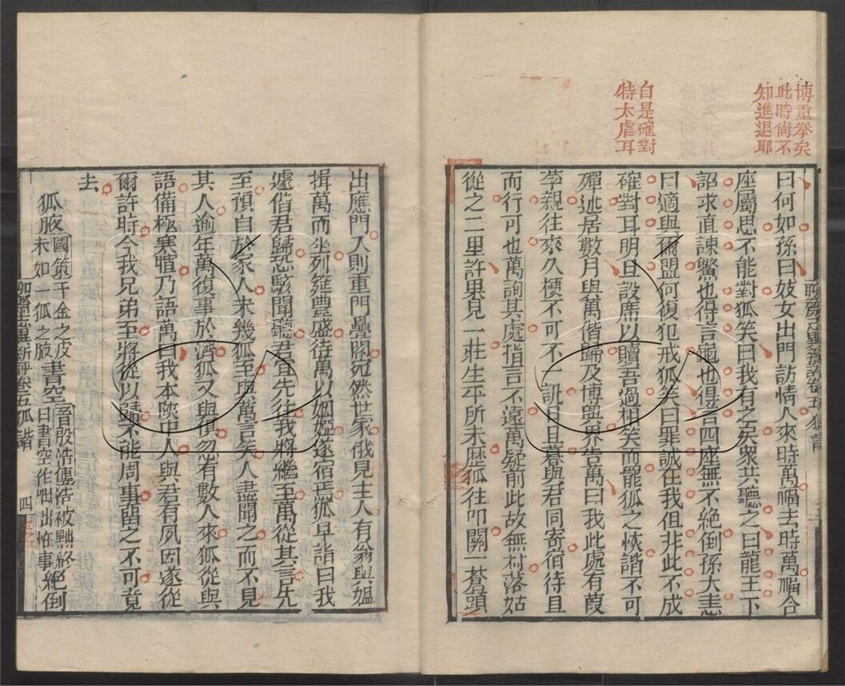 博重舉矣
此時尚不
知進退耶
自是確對
特太虐耳
曰何如孫曰妓女出門訪情人來時萬福去時萬福合
座屬思不能對狐笑曰我有之矣衆共聽之曰龍王下
詔求直諫鱉也得言龜也得言四座無不絕倒孫大恚
曰適與爾盟何復犯戒狐笑曰罪誠在我但非此不成
確對耳明旦設席以贖吾過相笑而罷狐之恢諧不可
殫述居數月與萬偕歸及博興界告萬曰我此處有葭
莩親往來久梗不可不一訊日且暮與君同寄宿待旦
而行可也萬詢其處指言不遠萬疑前此故無村落姑
從之二里許果見一莊生平所未歷狐往叩關一蒼頭
出應門入則重門疊閣宛然世家俄見主人有翁與媼
揖萬而坐列筵豐盛待萬以姻婭遂宿焉狐早詣曰我
遽偕君歸恐駭聞聽君宜先往我將繼至萬從其言先
至預白於家人未幾狐至與萬言笑人盡聞之而不見
其人逾年萬復事於濟狐又與俱忽有數人來狐從與
語備極寒暄乃語萬曰我本陝中人與君有夙因遂從
爾許時今我兄弟至將從以歸不能周事留之不可竟
去
狐腋國策千金之皮未如一狐之腋書空晉殷浩傳浩被黜終日書空作咄咄怪事絕倒
聊齋志異新評卷五狐諧 四